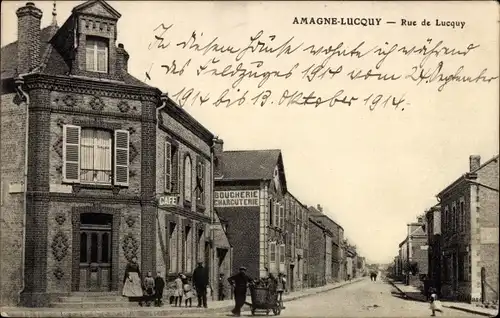 AMAGNE-LUCQUY — Rue de Lucquy
In diesem Hause wohnte ich während
des Feldzuges 1914 vom 24. September
1914 bis 13. Oktober 1914.
CAFÉ
BOUCHERIE
CHARCUTERIE